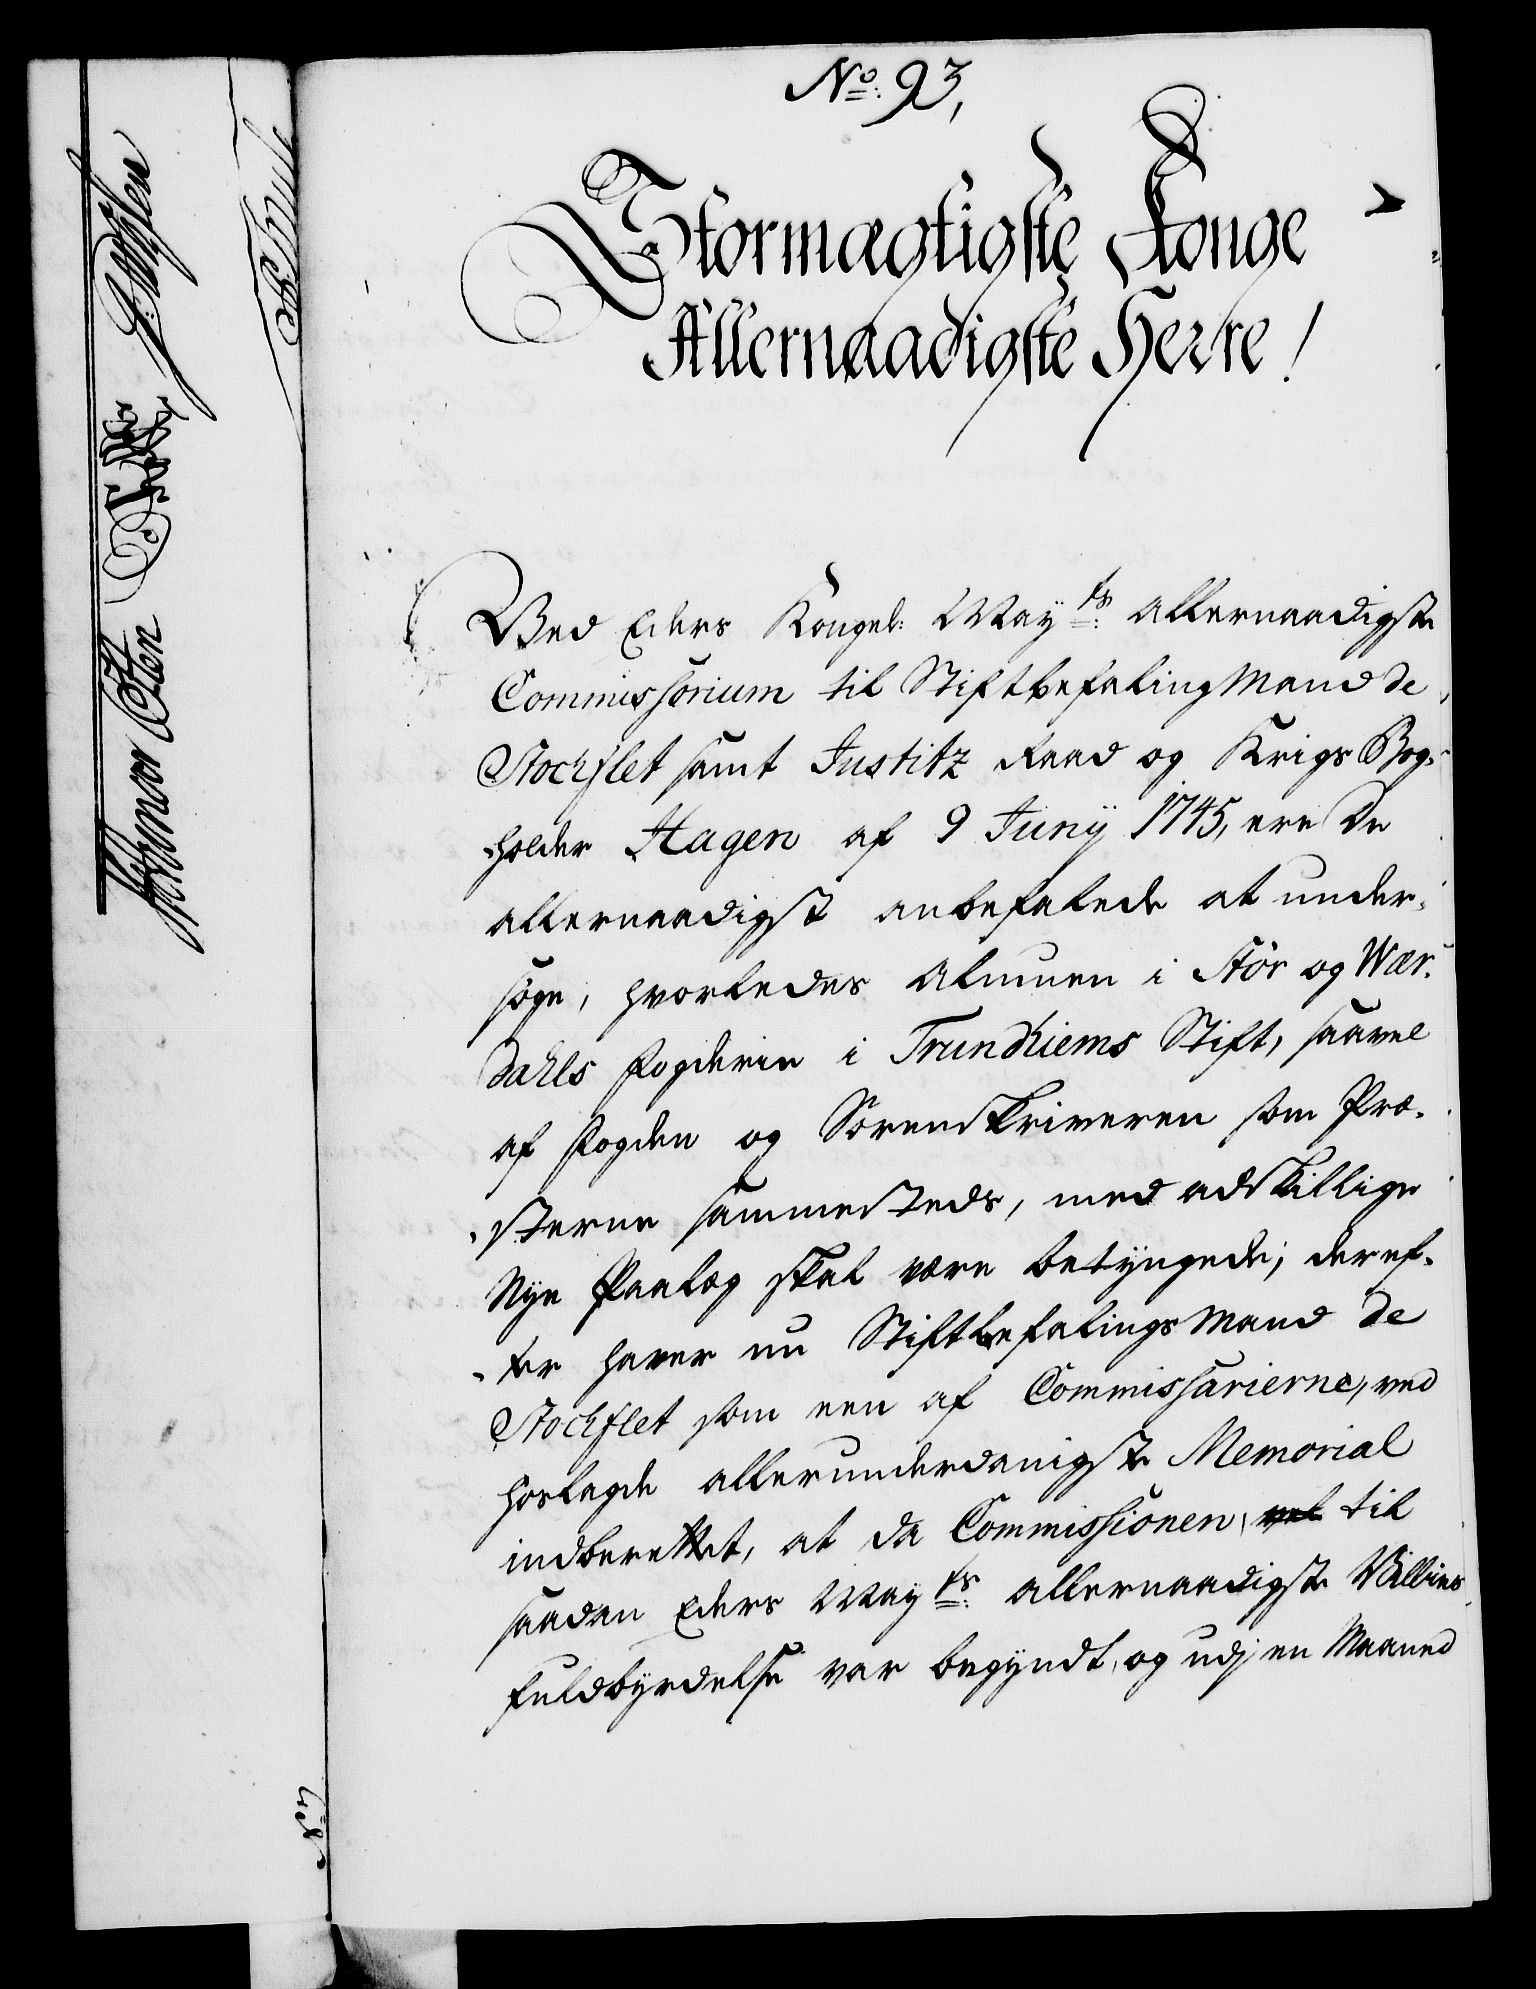 No: 93,
Stormægtigste Konge
Allernaadigste Herre!
Ved Eders Kongel: May ts: allernaadigste
Commissorium til Stiftbefalingmand de
Stockflet samt Justitz Raad og Krigs Bog-
-holder Hagen af 9 Junij 1745, ere De
allernaadigst anbefalede at under-
søge, hvorledes Almuen i Stör og Wær-
dahls Fogderie i Trundhiems Stift, saavel
af Fogden og Sorenskriveren som Præ-
-sterne sammesteds, med adskillige
Nye Paalæg skal være betyngede; deref-
-ter haver nu Stiftbefalings Mand de
Stockflet som een af Commissarierne, ved
hoslagde allerunderdanigste Memorial
indberettet, at da Commissionen vel til
saadan Eders May ts: allernaadigste Villies
fuldbyrdelse var begyndt, og udj en Maaned